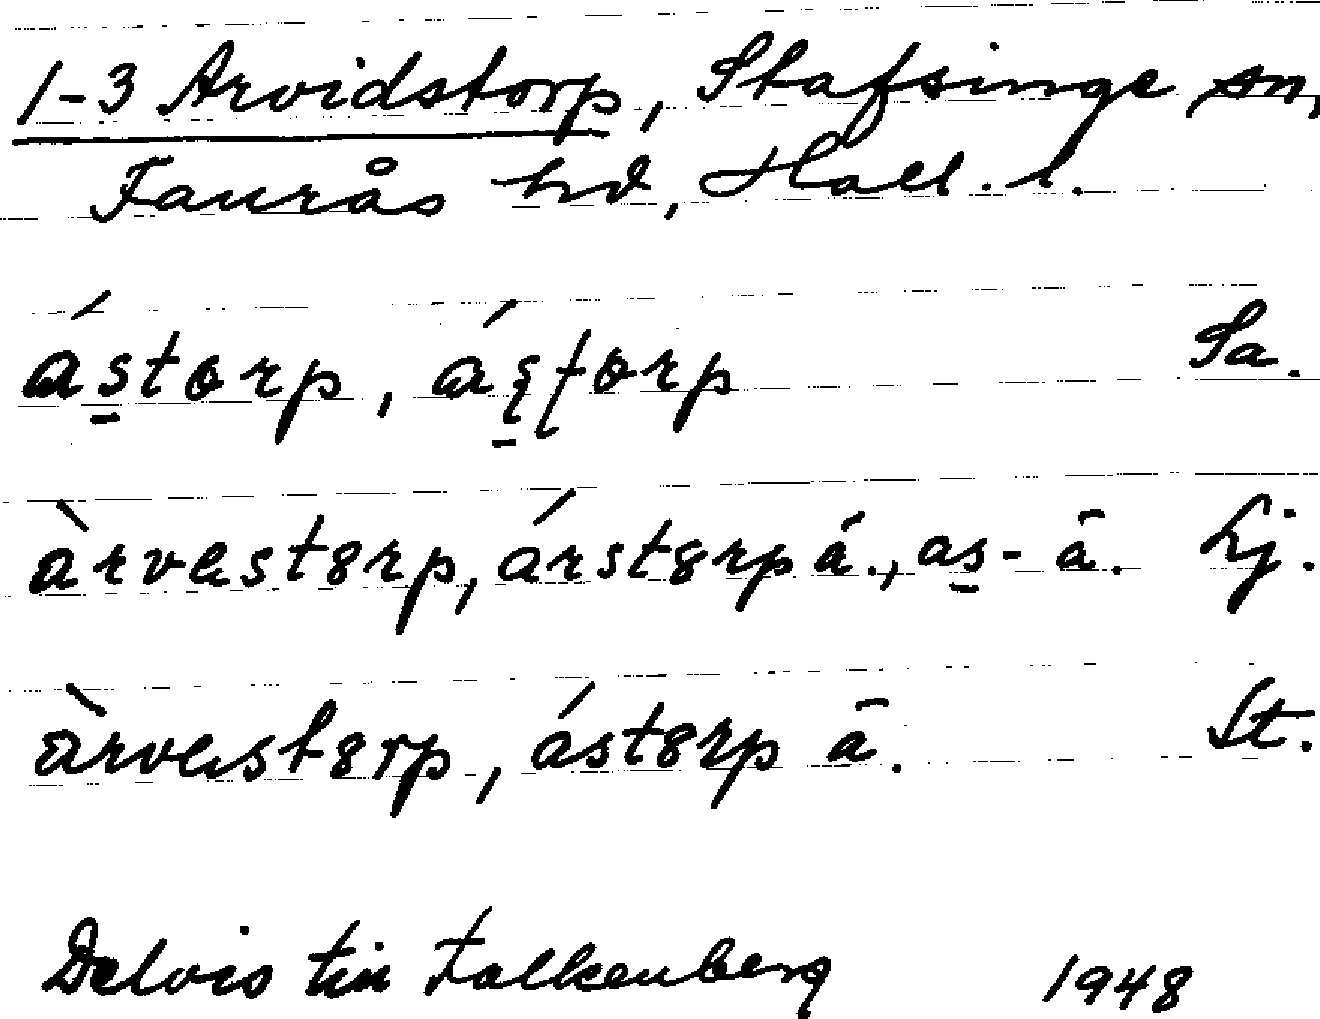 1-3 Arvidstorp, Stafsinge sn,
Faurås hd, Hall. l.
ás̲torp, áş̲ƫorp Sa.
àrvestȣrp, árstȣrp á., as̲- ā. Lj.
àrvestȣrp, ástȣrp ā. St.
Delvis till Falkenberg 1948